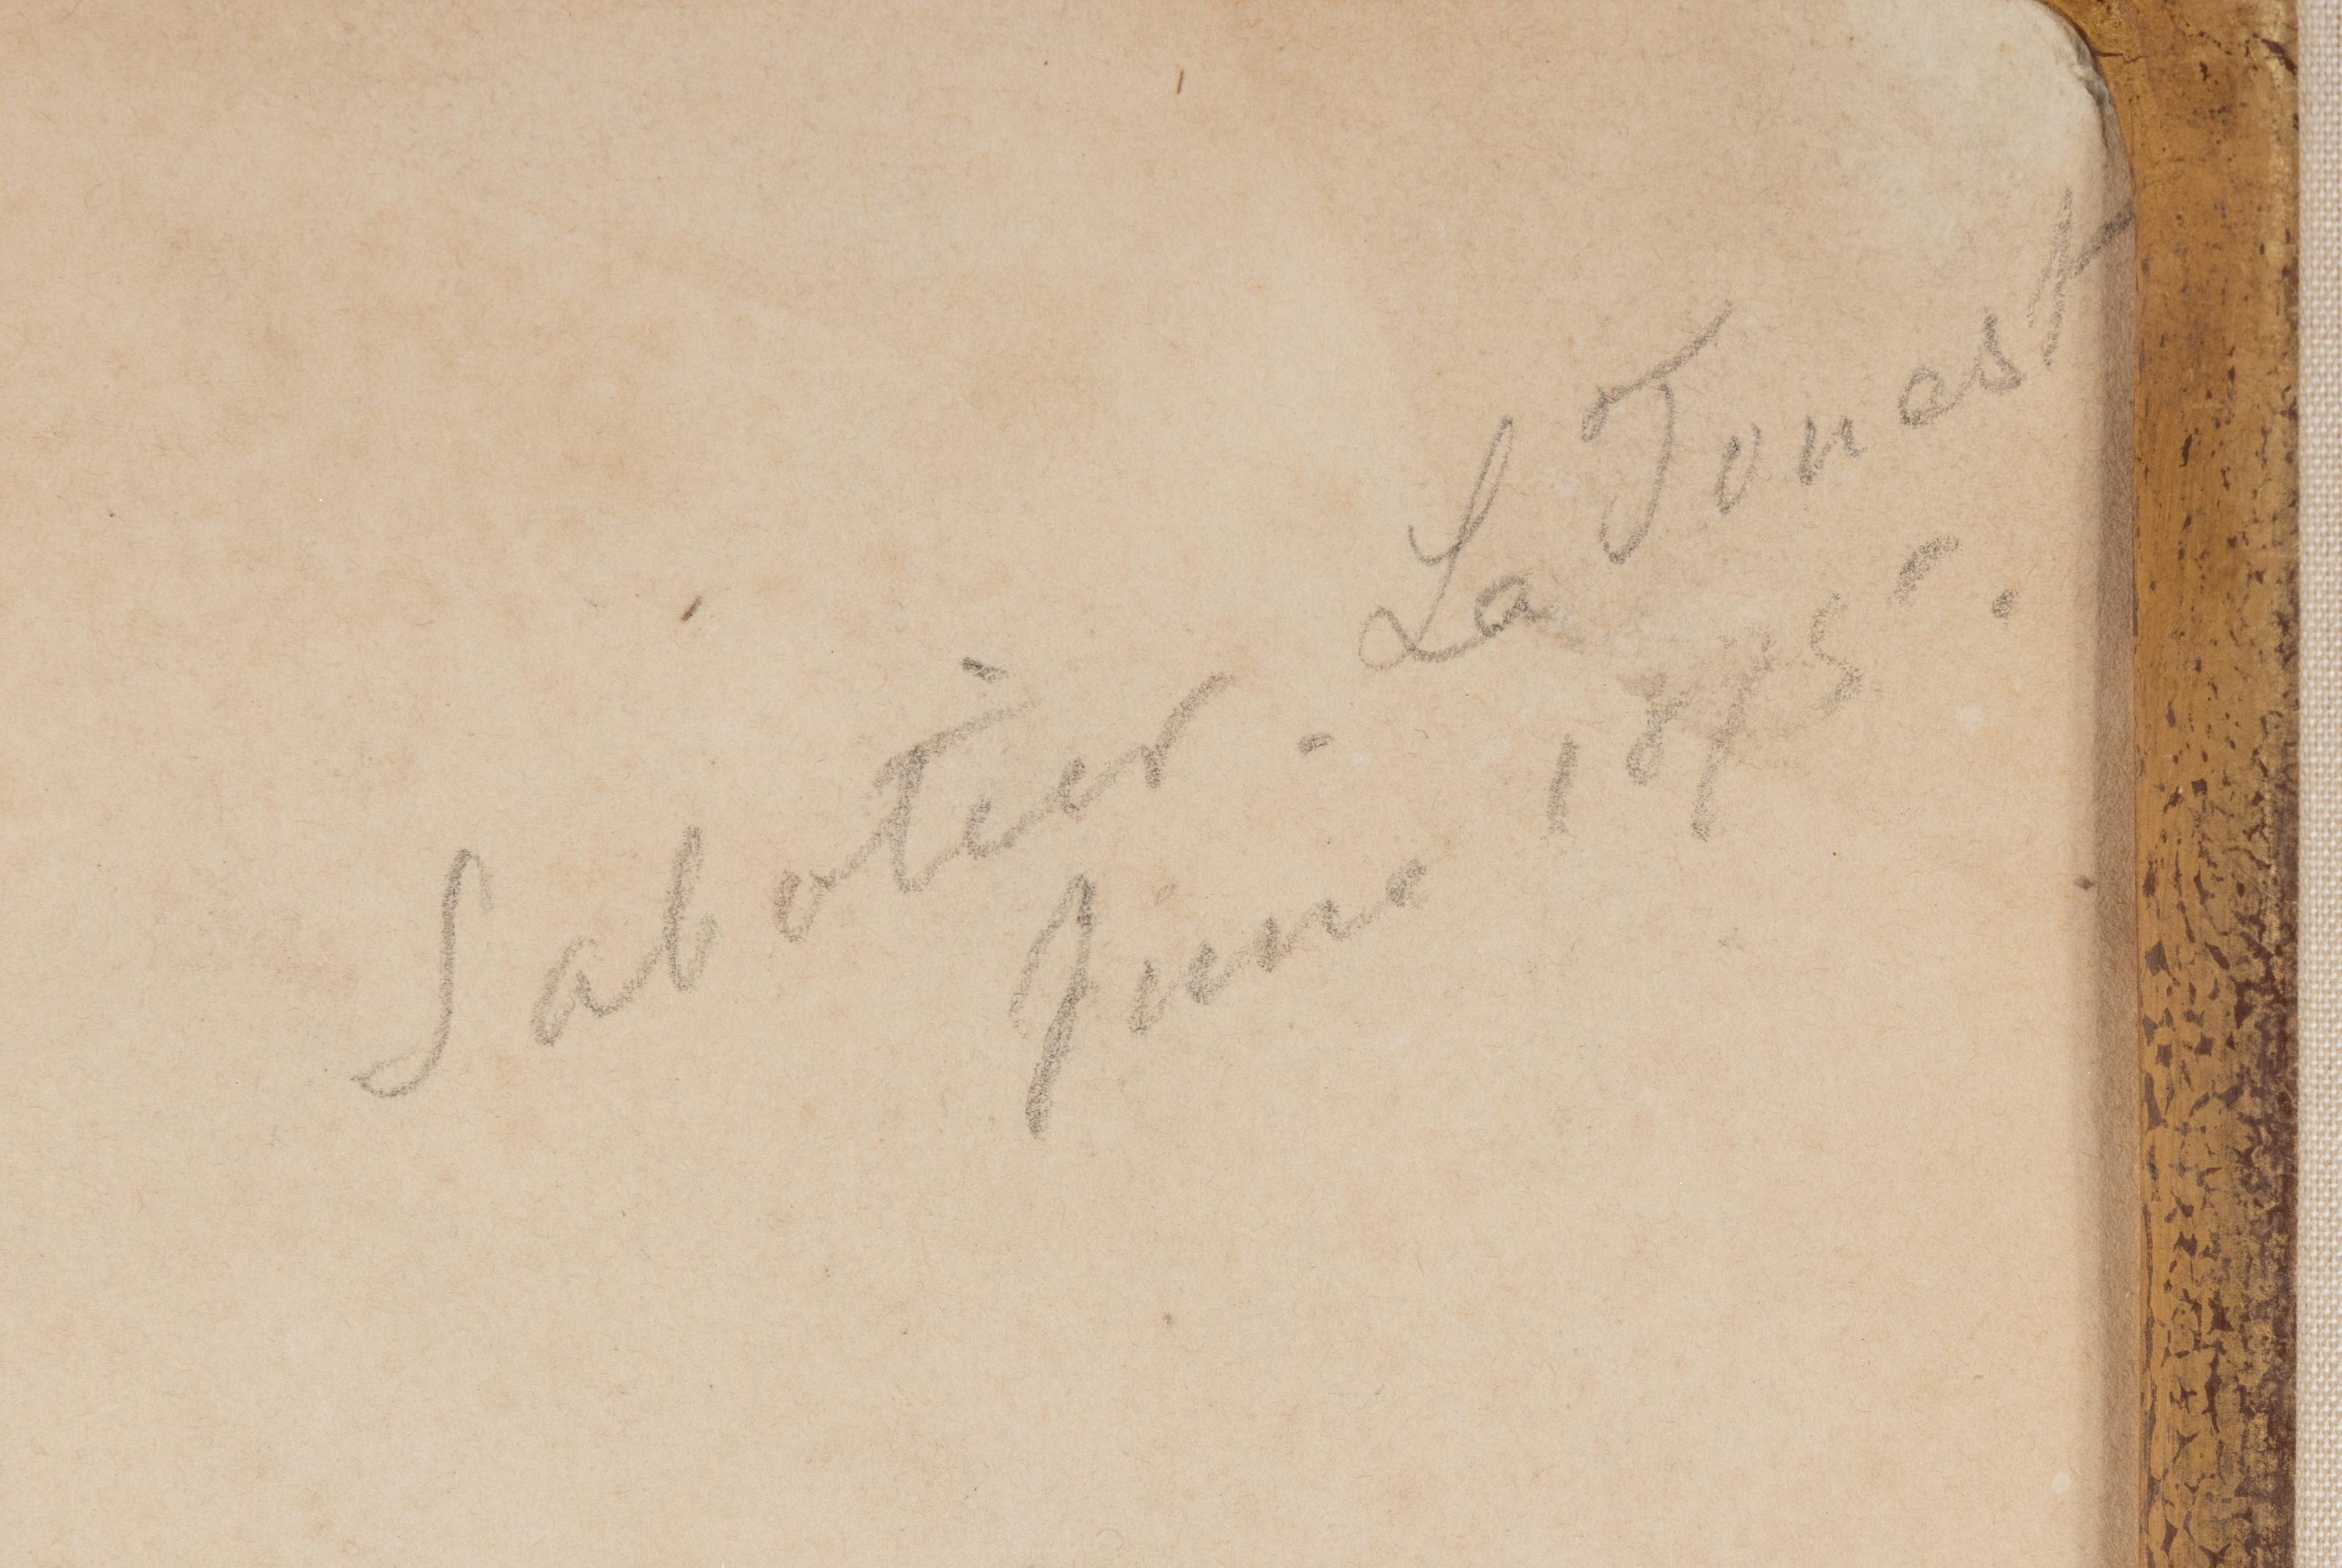 Sabotier. La Forest
June 1875.